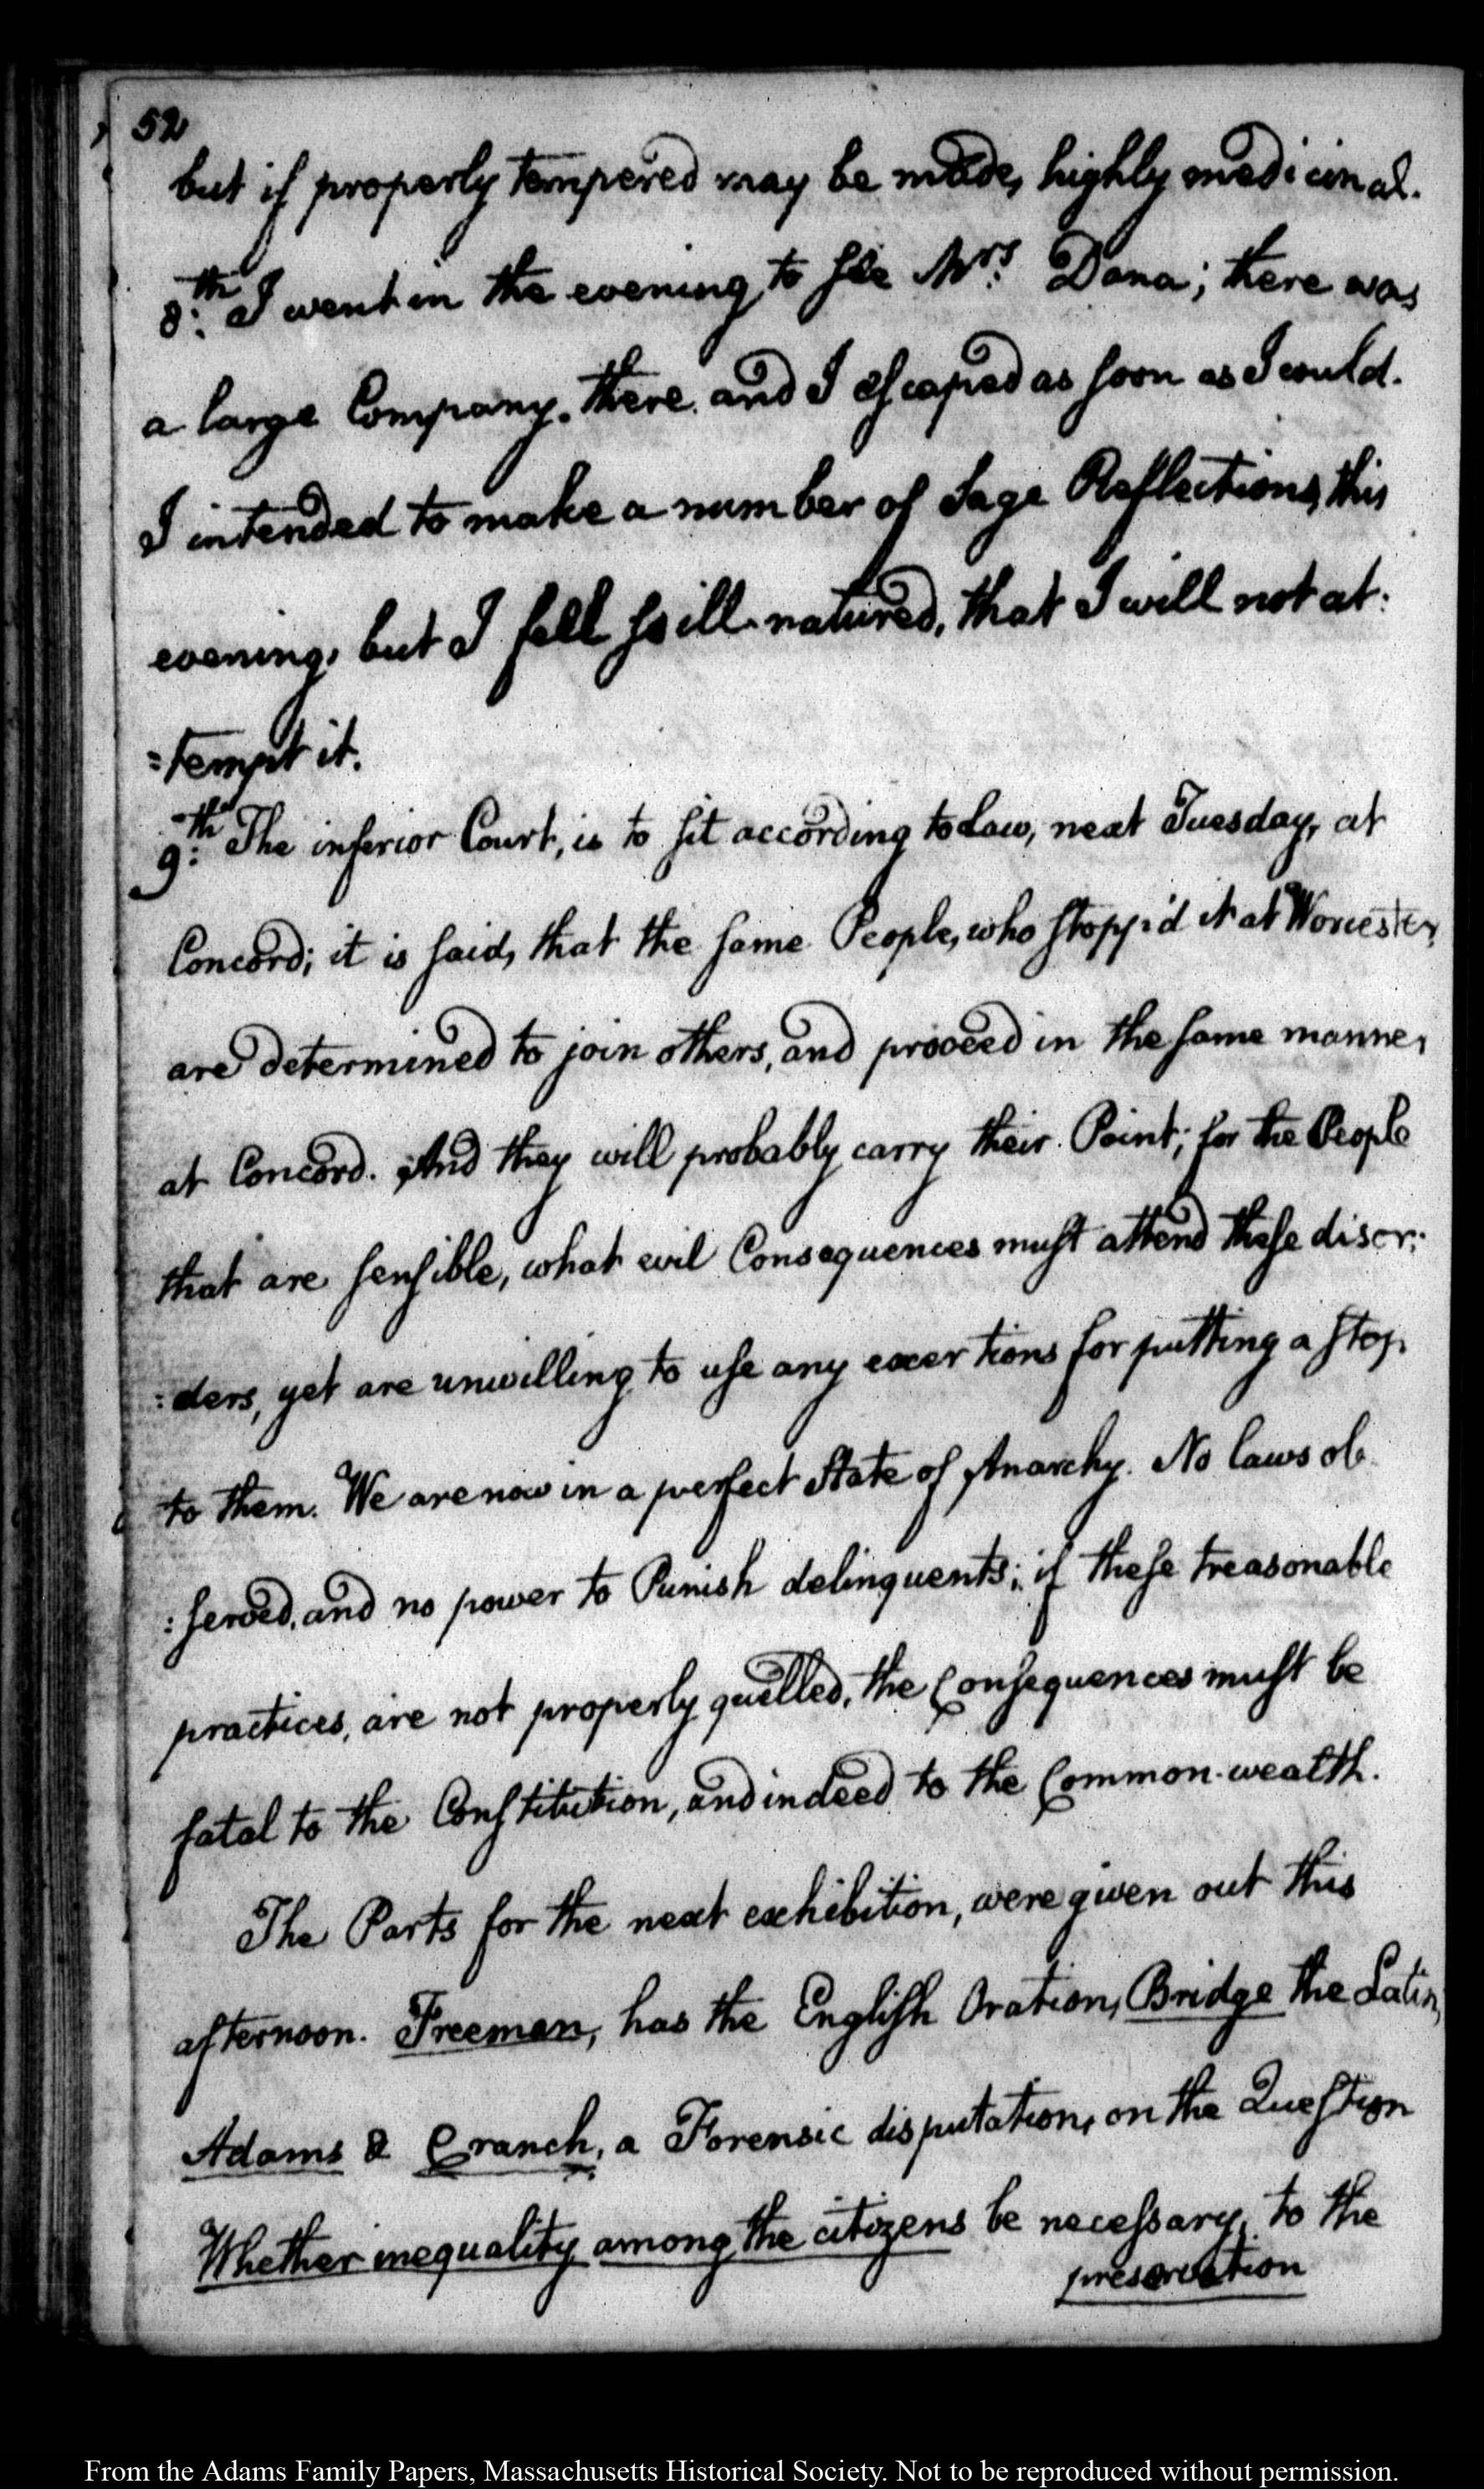 52
but if properly tempered may be made, highly medicinal.
8:th I went in the evening, to see Mrs: Dana; there was
a large Company. there. and I escaped as soon as I could.
I intended to make a number of Sage Reflections, this
evening, but I fell so ill-natured, that I will not at:
=tempt it.
9:th The inferior Court, is to sit according to Law, next Tuesday, at
Concord; it is said, that the same People, who stopp'd it at Worcester,
are determined to join others, and proceed in the same manner,
at Concord. And they will probably carry their Point; for the People
that are sensible, what evil Consequences must attend these disor:
:ders, yet are unwilling to use any exertions for putting a stop
to them. We are now in a perfect State of Anarchy. No laws ob
:served, and no power to Punish delinquents; if these treasonable
practices, are not properly quelled, the Consequences must be
fatal to the Constitution, and indeed to the Common-wealth.
The Parts for the next exhibition, were given out this
afternoon. Freeman, has the English Oration, Bridge the Latin,
Adams & Cranch, a Forensic disputation, on the Question
Whether inequality among the citizens be necessary, to the
preservation
From the Adams Family Papers, Massachusetts Historical Society. Not to be reproduced without permission.